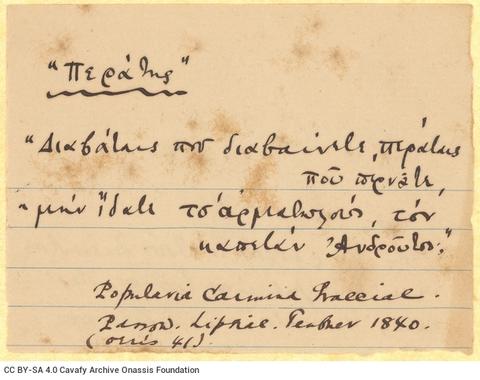 "Περάτης"
"Διαβάταις που διαβαίνετε, περάταις
πού περνᾶτε,
"μήν εἴδατε τσ' ἁρματωλούς, τόν
καπετάν Ἀνδροῦτσο;"
Popularia Carmina Graeciae.
Passow. Lipsiae. Teubner 1860.
(σελίς 41).
CC BY-SA 4.0 Cavafy Archive Onassis Foundation